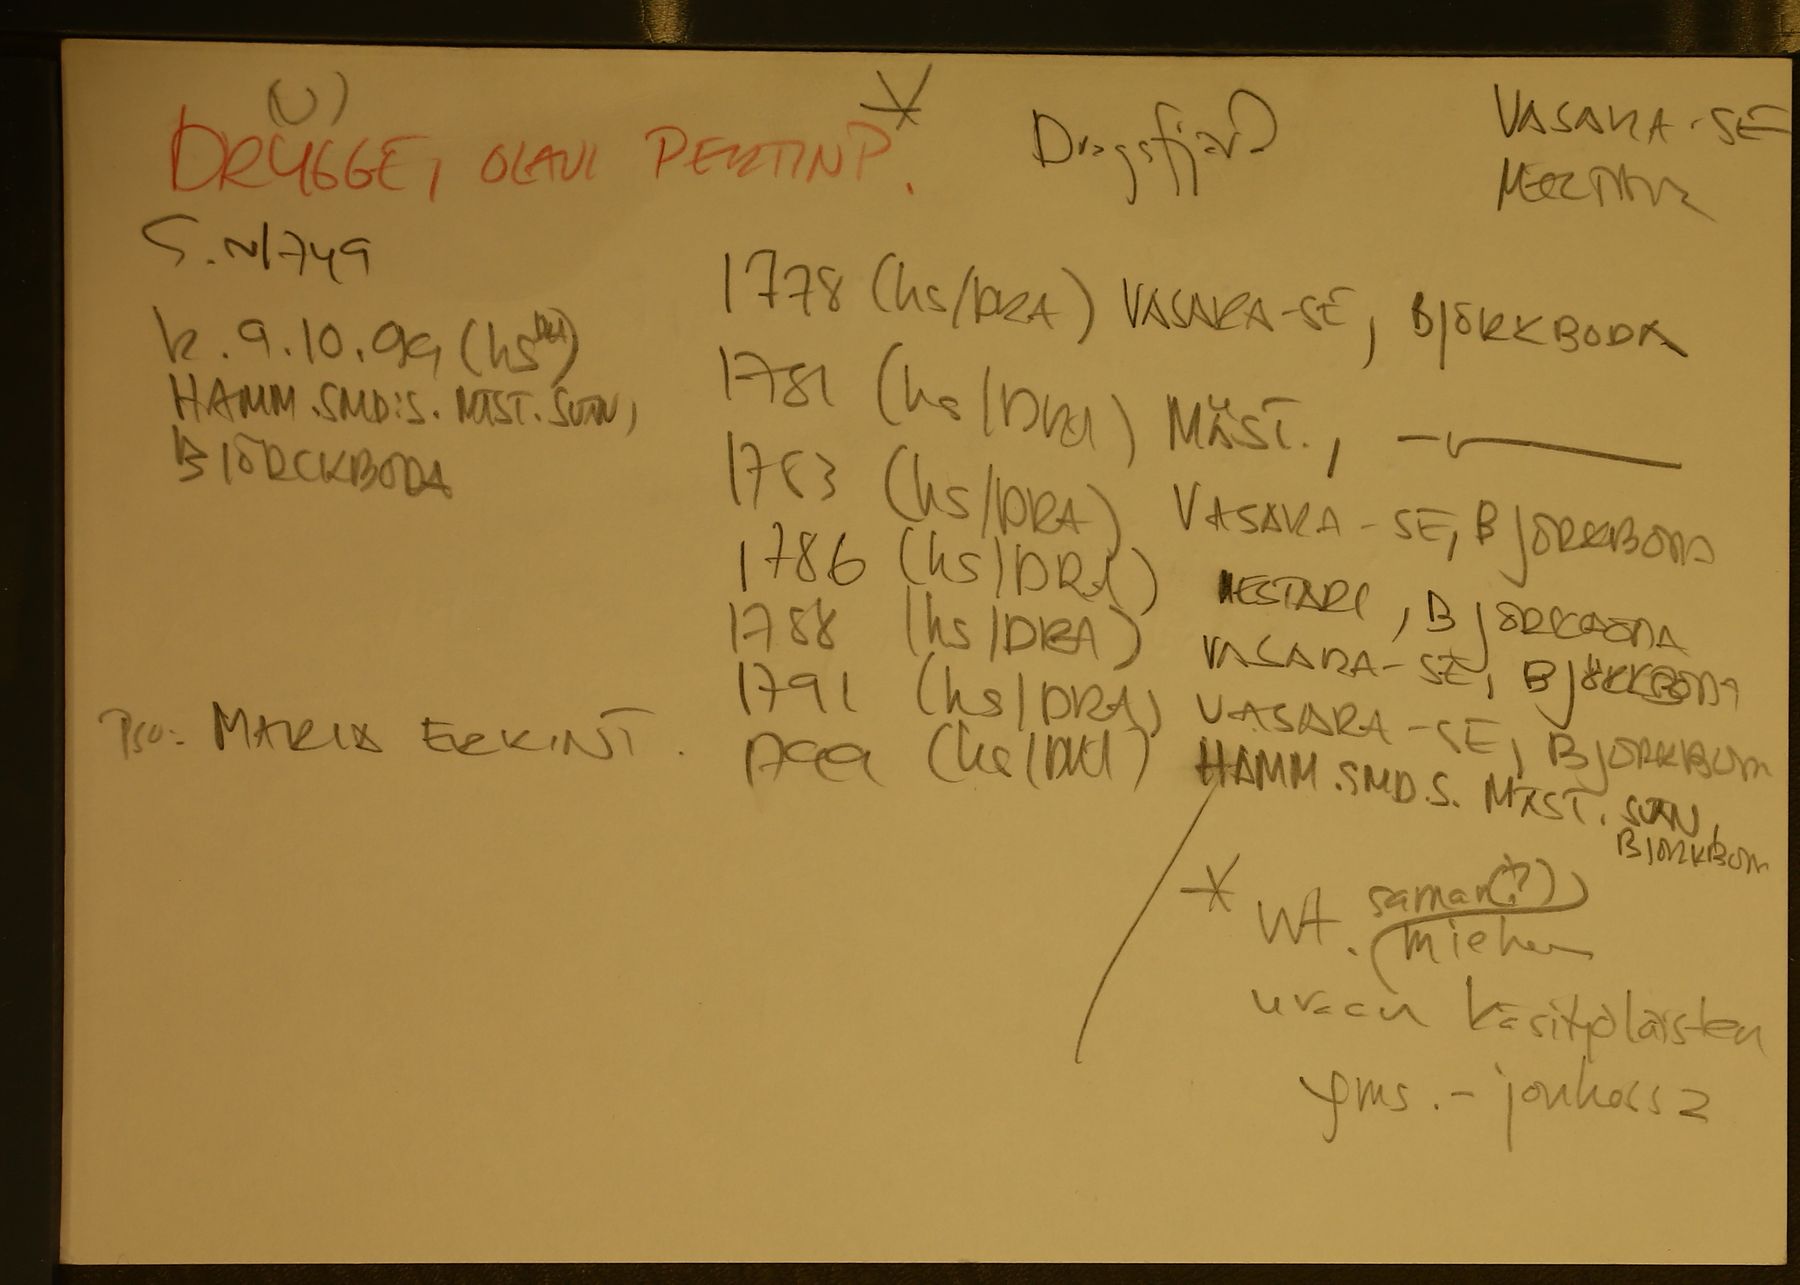 (U)
DRYGGE, OLAVI PERTINP.* Dragsfjärd VASARA-SE
MESTARI
S. N1749
k. 9.10.99 (hs DRA)
HAMM.SMD:S. MÄST. SVEN,
BJÖRCKBODA
1778 (hs/DRA) VASARA-SE, BJÖRKBODA
1781 (hs/DRA) MÄST., —〃—
1783 (hs/DRA) VASARA-SE, BJÖRKBODA
1786 (hs/DRA) MESTARI, BJÖRKBODA
1788 (hs/DRA) VASARA-SE, BJÖRKBODA
1791 (hs/DRA) VASARA-SE, BJÖRKBODA
1799 (hs/DRA) HAMM.SMD.S. MÄST.
BJÖRKBODA
Pso: MARIA ERKINT.
* Vrt. saman(?)
miehen
uraan käsityöläisten
yms. - joukossa